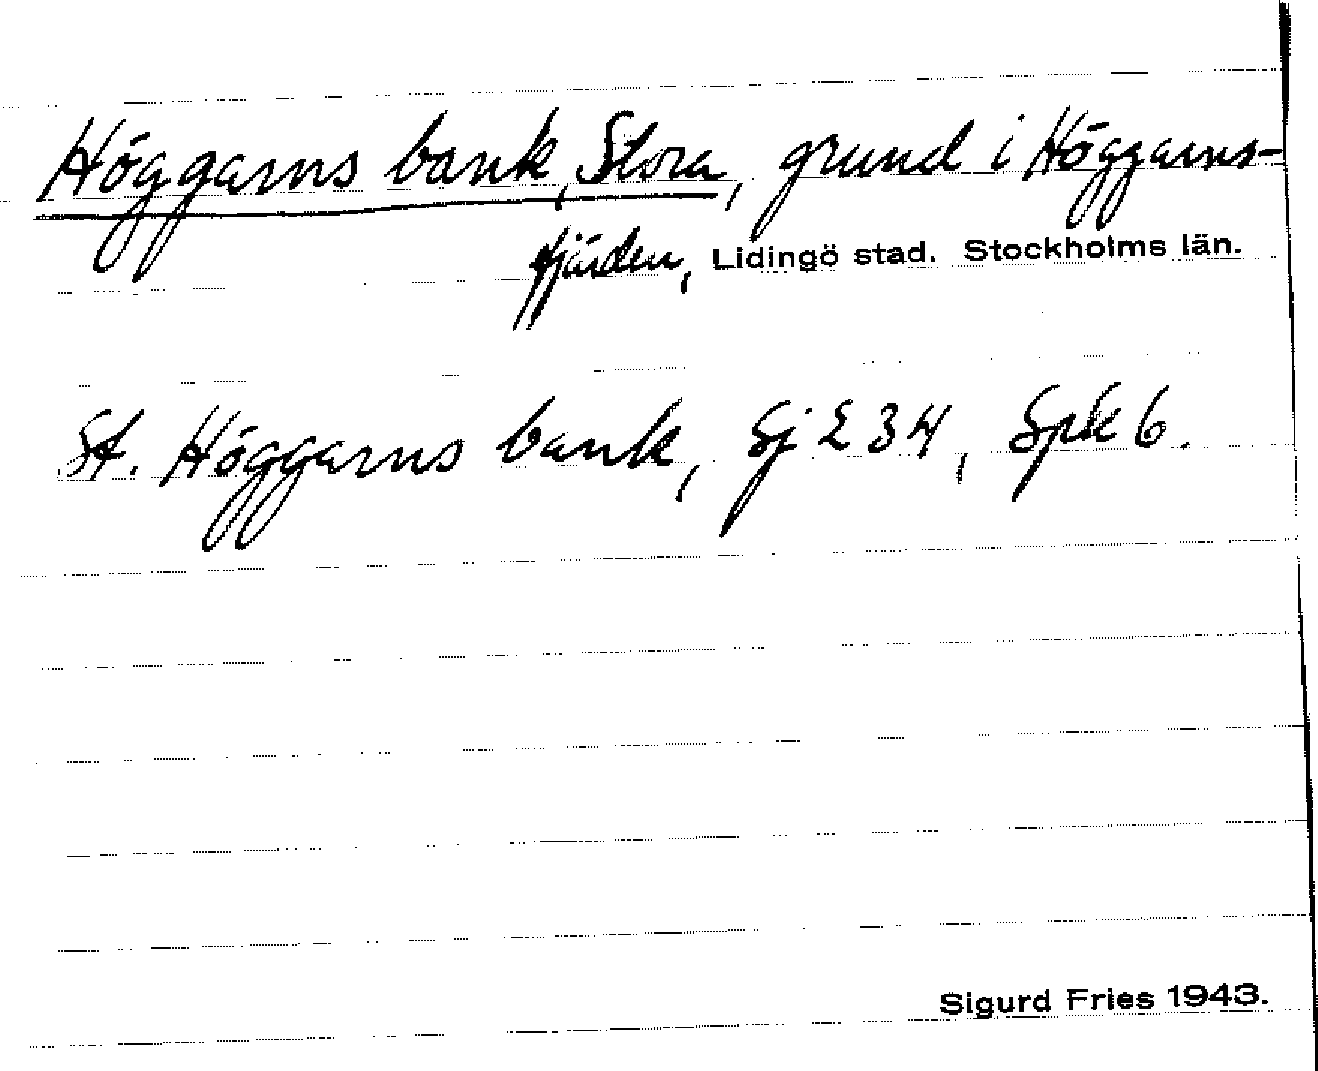 Höggarns bank, Stora, grund i Höggarns-
fjärden, Lidingö stad. Stockholms län.
St. Höggarns bank, Sj 234, Spk 6.
Sigurd Fries 1943.